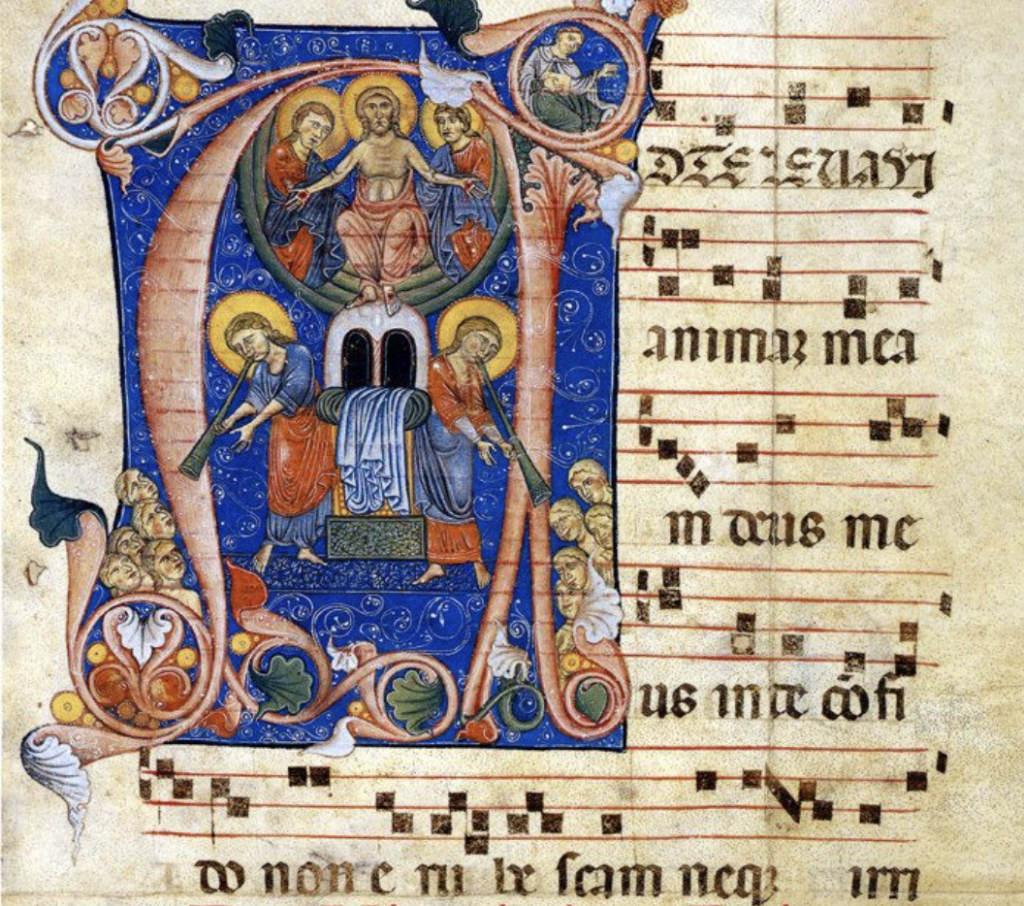 AD TE LEUAVI
animaꝫ mea
m deus me
us in te cōfi
do non e ru be scam neqꝫ irri